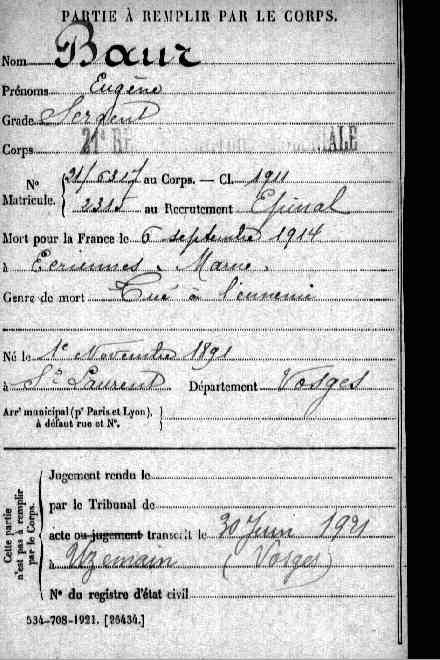 PARTIE À REMPLIR PAR LE CORPS.
Nom Baur
Prénoms Eugène
Grade Sergent
Corps 21e RÉ IALE
No Matricule. 21/5317 au Corps. — Cl. 1911
2315 au Recrutement Epinal
Mort pour la France le 6 septembre 1914
à Ecriennes, Marne.
Genre de mort Tué à l'ennemi
Né le 1er Novembre 1891
à St Laurent Département Vosges
Arrt municipal (pr Paris et Lyon),
à défaut rue et No.
Cette partie n'est pas à remplir par le Corps.
Jugement rendu le
par le Tribunal de
acte ou jugement transcrit le 30 Juin 1921
à Uzemain (Vosges)
No du registre d'état civil
534-708-1921. [26434.]